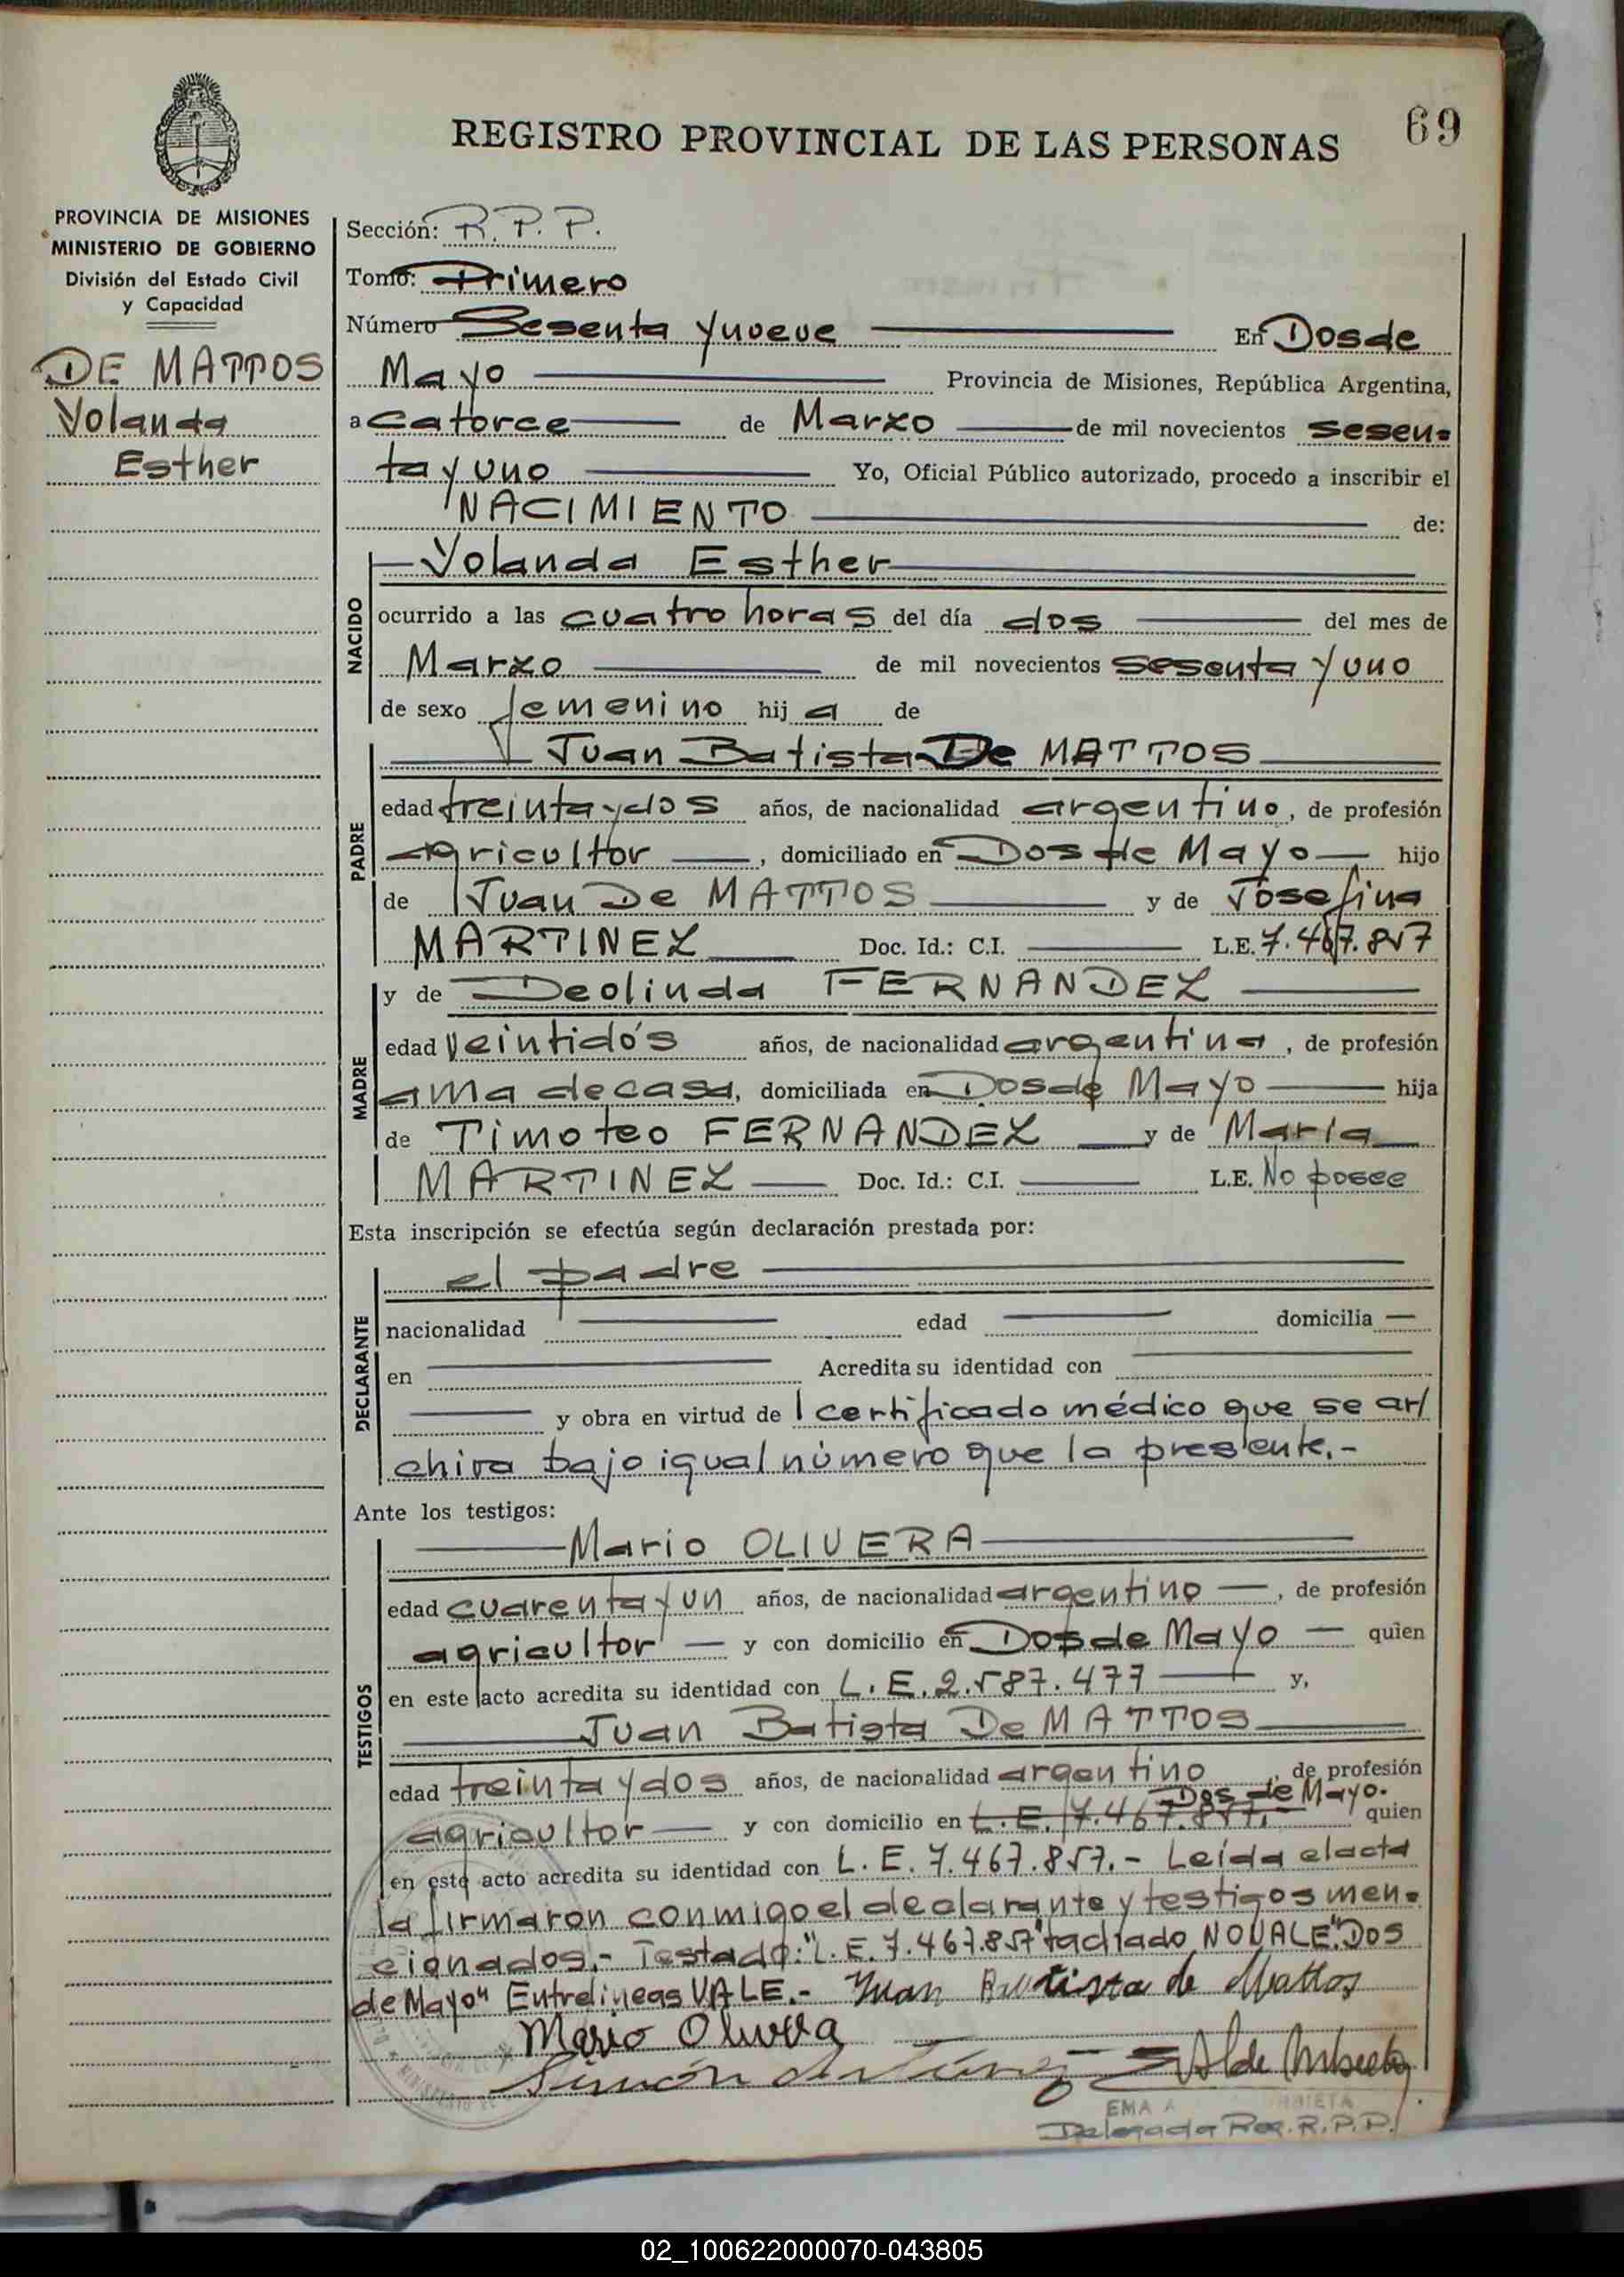 REGISTRO PROVINCIAL DE LAS PERSONAS
69
PROVINCIA DE MISIONES
MINISTERIO DE GOBIERNO
División del Estado Civil
y Capacidad
DE MATTOS
Yolanda
Esther
Sección: R. P. P.
Tomo: Primero
Número Sesenta y nueve En Dos de
Mayo Provincia de Misiones, República Argentina,
a catorce de Marzo de mil novecientos sesen-
ta y uno Yo, Oficial Público autorizado, procedo a inscribir el
NACIMIENTO de:
NACIDO
Yolanda Esther
ocurrido a las cuatro horas del día dos del mes de
Marzo de mil novecientos sesenta y uno
de sexo femenino hija de
PADRE
Juan Batista De MATTOS
edad treinta y dos años, de nacionalidad argentino, de profesión
agricultor, domiciliado en Dos de Mayo hijo
de Juan De MATTOS y de Josefina
MARTINEZ Doc. Id.: C.I. L.E. 7.467.857
MADRE
y de Deolinda FERNANDEZ
edad veintidós años, de nacionalidad argentina, de profesión
ama de casa, domiciliada en Dos de Mayo hija
de Timoteo FERNANDEZ y de María
MARTINEZ Doc. Id.: C.I. L.E. No posee
Esta inscripción se efectúa según declaración prestada por:
DECLARANTE
el padre
nacionalidad edad domicilia
en Acredita su identidad con
y obra en virtud de 1 certificado médico que se ar/
chiva bajo igual número que la presente.-
Ante los testigos:
TESTIGOS
Mario OLIVERA
edad cuarenta y un años, de nacionalidad argentino, de profesión
agricultor y con domicilio en Dos de Mayo quien
en este acto acredita su identidad con L. E. 2.587.477 y,
Juan Batista De MATTOS
edad treinta y dos años, de nacionalidad argentino, de profesión
Dos de Mayo.
agricultor y con domicilio en L. E. 7.467.857.- quien
en este acto acredita su identidad con L. E. 7.467.857.- Leída el acta
la firmaron conmigo el declarante y testigos men-
cionados.- Testado: "L. E. 7.467.857" tachado NO VALE. "Dos
de Mayo" Entrelíneas VALE.- Juan Bautista de Mattos
Mario Olivera
Simón
EMA A
Delegada R.P.P.
02_100622000070-043805